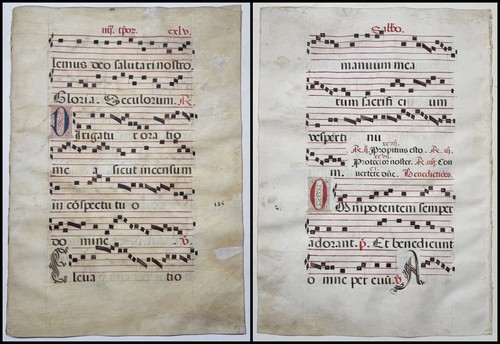 iiij. tpor. cxlv.
lemus deo salutari nostro.
Gloria. Seculorum. R.
Dirigatur oratio
me a sicut incensum
in cōspectu tu o
do mine V.
Eleva tio
125
Sabbo.
manuum mea
rum sacrifi ci um
vesperti nu
R. ij. Propitius esto. R. iij.
m. Protector noster. R. iiij. Con
vertere dñe. Benedictios.
Omnipotentem semper
adorant. p. Et benedicunt
o mne per euū. V. A